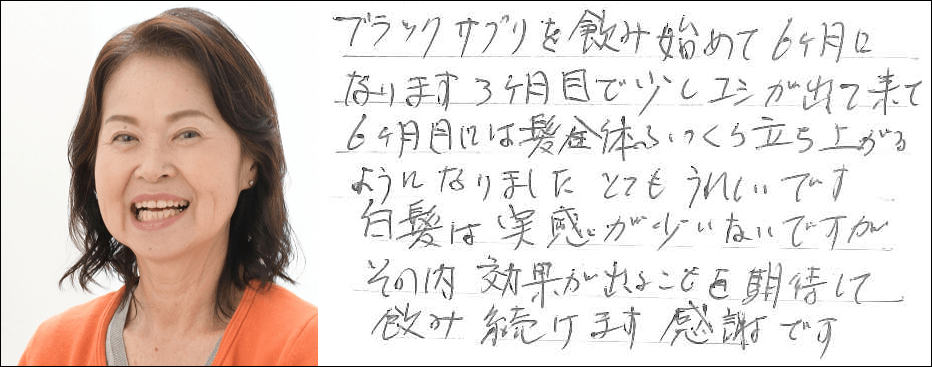 ブラックサプリを飲み始めて6ケ月に
なります3ケ月目で少しコシが出て来て
6ケ月目には髪全体ふっくら立ち上がる
ようになりましたとてもうれしいです
白髪は実感が少いないですが
その内効果が出ることを期待して
飲み続けます感謝です